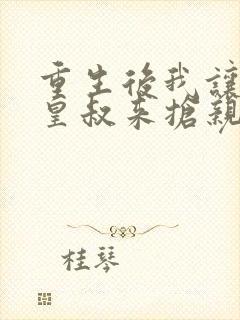 重生後我讓
皇叔来搶親
桂琴